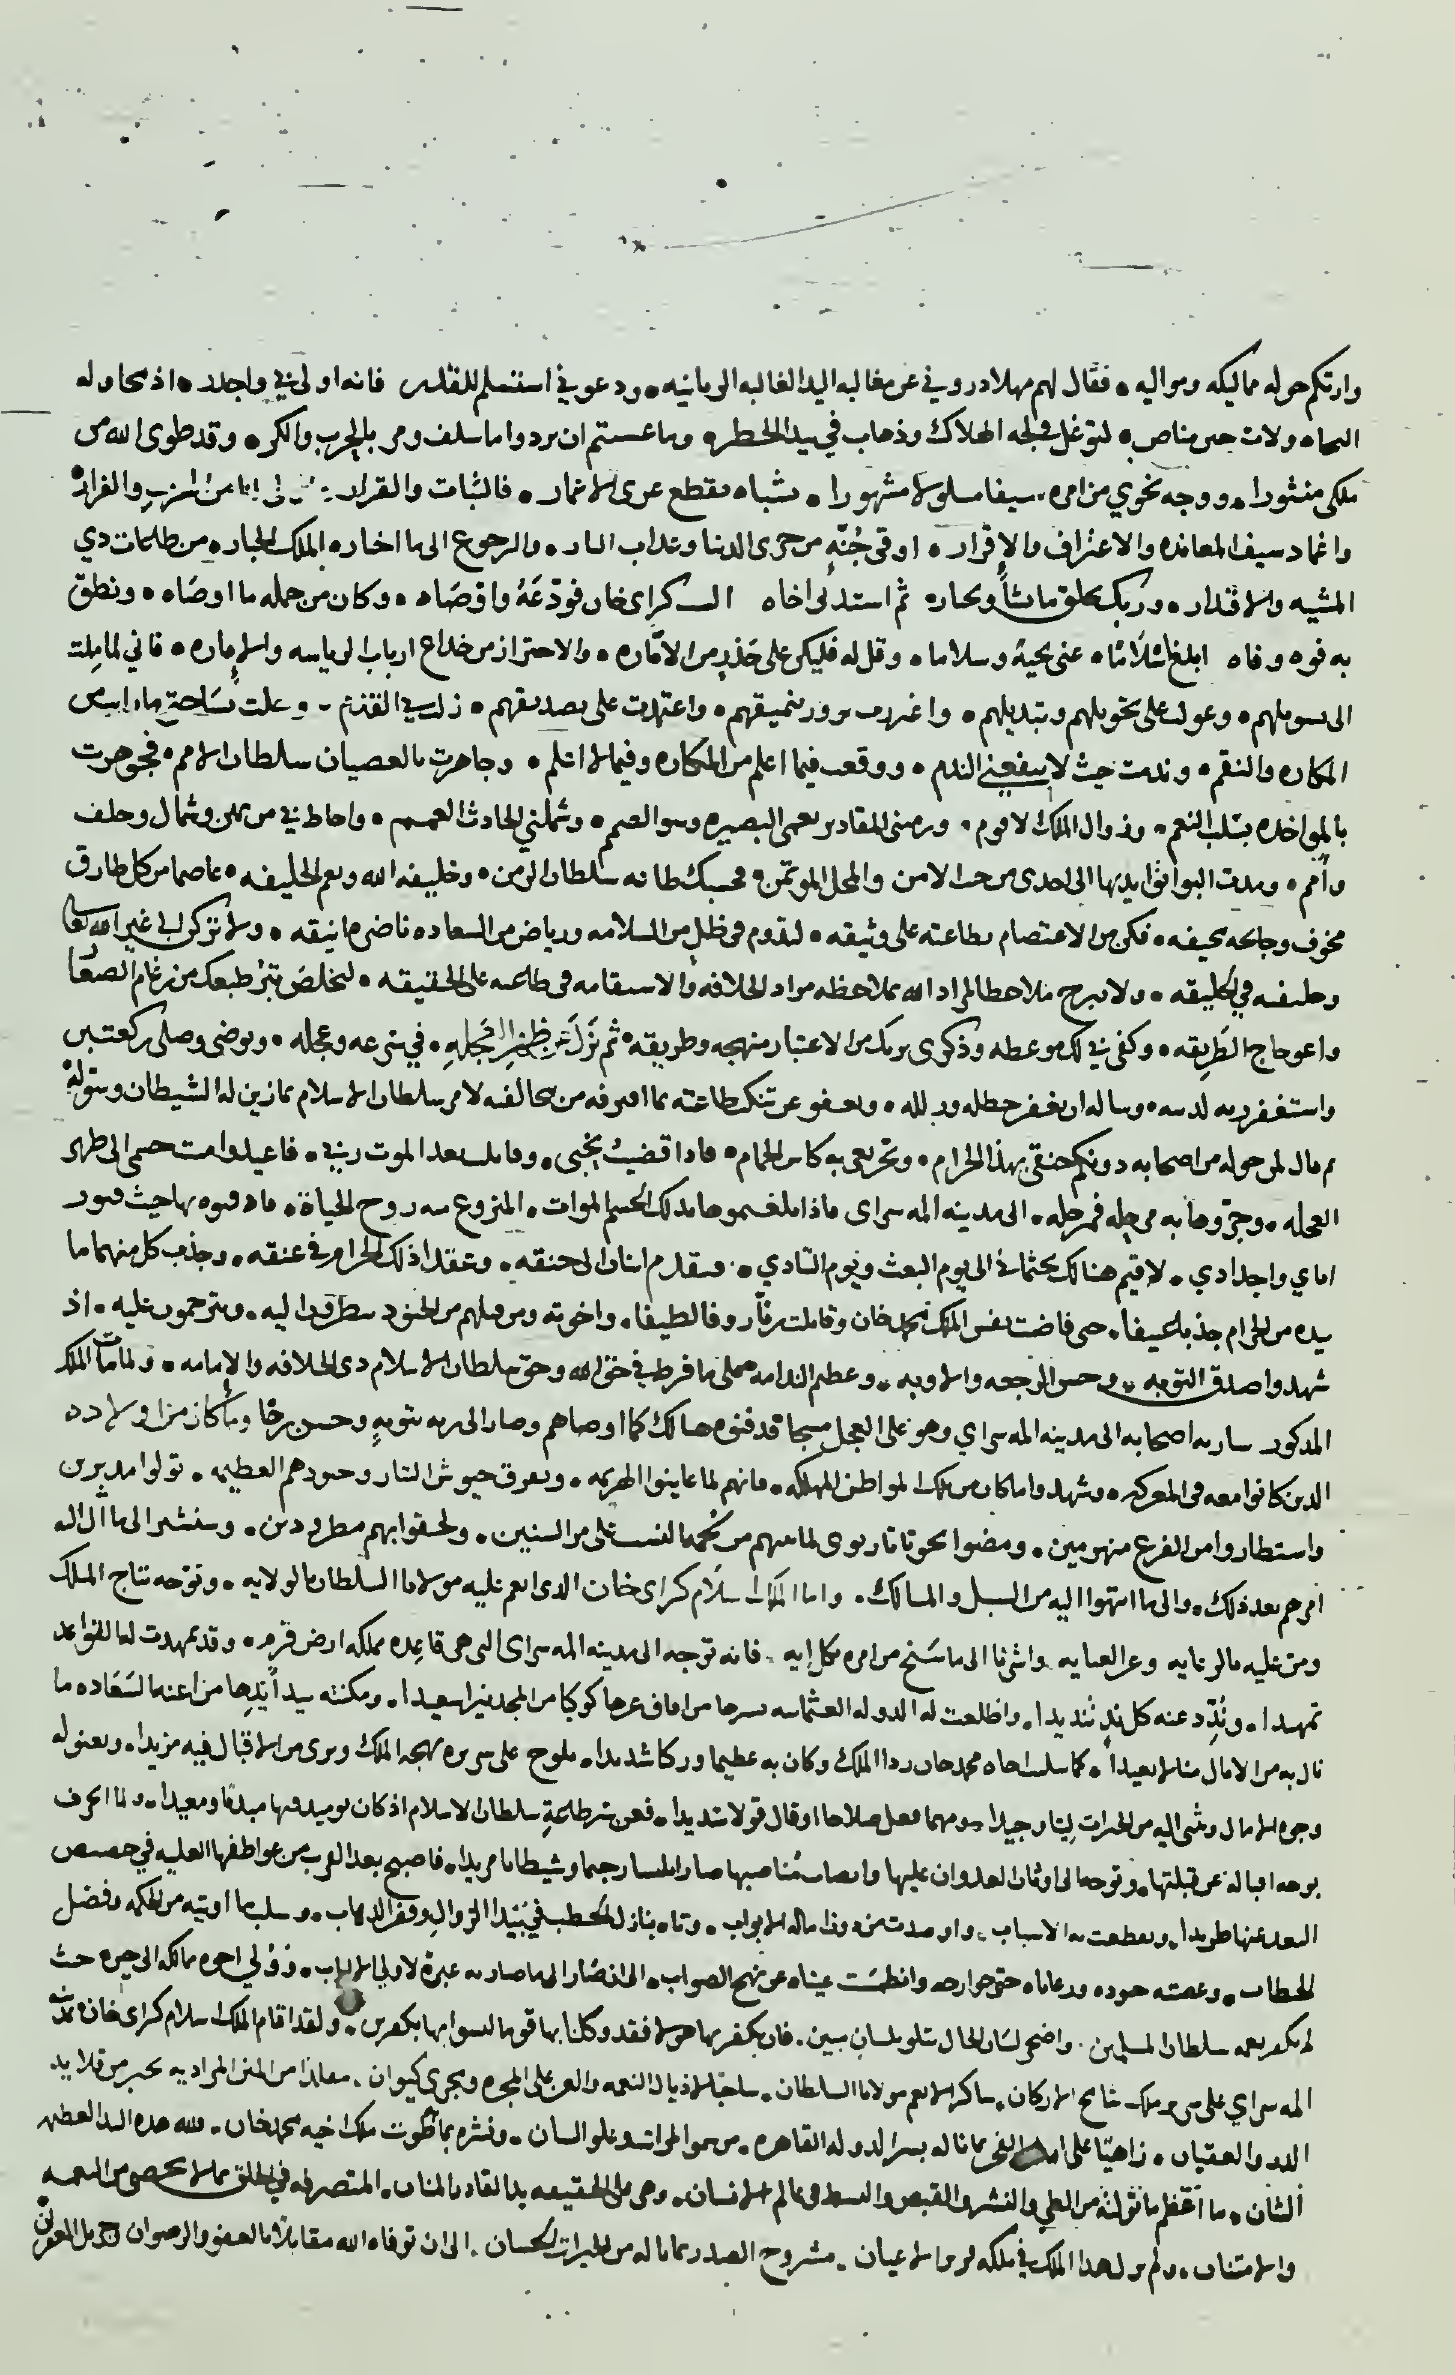 وارتكم حوله مماليكه ومواليه ۰ فقال لهم مهلا دروني عن مغالبه اليد الغالبه الربانيه ۰ ودعوني استسلم للقدر فانه اولى بي واجدر ۰ اذ محاوله
النجاه ولات حين مناص ۰ لتوغل في لجه الهلاك وذهاب في بيد الخطر ۰ وما عسيتم ان يردوا ما سلف ومر بالحرب والكر ۰ وقد طوى الله من
ملكي منثورا ۰ ووجه نحوي من امره سيفا مسلولا مشهورا ۰ بشباه يقطع عرى الاعمار ۰ فالثبات والقرار والفرار ۰
واغماد سيف المعانده والاعتراف والاقرار ۰ اوقى جُنّه من خزى الدنيا وعذاب النار ۰ والرجوع الى ما اختاره الملك الجبار ۰ من طلبات ذي
المشيه والاقتدار ۰ وربك يخلق ما يشاء ويختار ۰ ثم استدنى اخاه كراى خان فودّعَهُ واوصَاه ۰ وكان من جمله ما اوصَاه ۰ ونطق
به فوه وفاه ابلغا عني تحية وسلاما ۰ وقل له فليكن على حَذرٍ من الامّاره ۰ والاحتراز من خداع ارباب الرياسه والاماره ۰ فاني لما مِلت
الى تسويلهم ۰ وعولت على تخويلهم وتبديلهم ۰ واغتررت بزور تنميقهم ۰ واعتمدت على تصديقهم ۰ زلت بي القدم ۰ وحلت بسَاحتي
المكاره والنقم ۰ وندمت حيث لا ينفعني الندم ۰ ووقعت فيما اعلم من المكاره وفيما لا اعلم ۰ وجاهرت بالعصيان سلطان الامم ۰ فجوهرت
بالمواخذه بسَلب النعم ۰ وزوال الملك الاقوم ۰ ورمتني المقادير بعمى البصيره وسوا الصمم ۰ وشملني الحادث العمم ۰ واحاط بي من يمين وشمال وخلف
وأمم ۰ ومدت البوائق ايديها الى اخذى من حيث الامن والمحل الموتمن ۰ فحسبك طاعه سلطان الزمن ۰ وخليفه الله ونعم الخليفه ۰ عاصما من كل طارق
مخوف وجائحه مخيفه ۰ فكن من الاعتصام بطاعته على وثيقه ۰ لتدوم في ظل من السلامه ورياض من السعاده ناضره انيقه ۰ ولا تركن الى غير الله تعالى
وخليفته في الخليقه ۰ ولا تبرح ملاحظا لمراد الله بملاحظه مراد الخلافه والاستقامه في طاعته على الحقيقه ۰ لتخلص تبرُ طبعك من
واعوجاج الطريقه ۰ وكفى بي لك موعظه وذكرى تريك من الاعتبار منهجه وطريقه ۰ ثم نَزَلَ عن ظَهرِ الى عَجَلهٍ ۰ في سرعه وعجله ۰ وتوضى وصلى ركعتين
واستغفر ربه لذنبه ۰ وساله ان يغفر خطله وزلله ۰ ويعفو عن تنكب طاعته بما اقترفه من مخالفته لامر سلطان الاسلام بما زين له الشيطان وسَوّله ۰
ثم قال لمن حوله من اصحابه دونكم خنقي بهذا الحزام ۰ وتجرعى به كاس الحمام ۰ فاذا قضيتُ نحبى ۰ وقابلت بعد الموت ربي ۰ فاعيدوا ميت جسمى الى ظهر
العجله ۰ وجرّوها به مرحله فمرحله ۰ الى مدينه المه سراى فاذا بلغتموها بذلك الجسم الموات ۰ المنزوع منه روح الحياة ۰ فادفنوه بها حيث قبور
اباي واجدادي ۰ لاقيم هنالك بجثماني الى يوم البعث ويوم التنادي ۰ فتقدم اثنان الى خنقه ۰ وعقدا ذلك الحزام في عنقه ۰ وجذب كل منهما ما
بيده من الحزام جذبا عنيفا ۰ حتى فاضت نفس الملك محمد خان وقابلت ربّا رؤفا لطيفا ۰ واخوته ومن قبلهم من الجنود ينظرون اليه ۰ ويترحمون عليه ۰ اذ
شهدوا صدق التوبه ۰ وحسن الرجعه والاوبه ۰ وعظم الندامه على ما فرط في حق الله وحق سلطان الاسلام ذي الخلافه والامامه ۰ ولما مات الملك
المذكور سار به اصحابه الى مدينه المه سراي وهو على العجل مسجا ۰ فدفنوه هنالك كما اوصاهم وصار الى ربه بتوبهٍ وحسن رجا ۰ وما كان من اولاده
الذين كانوا معه في المعركه ۰ وشهدوا ما كان من تلك المواطن المهلكه ۰ فانهم لما عاينوا الهزيمه ۰ وتفرق جيوش التتار وجنودهم العظيمه ۰ تولوا مدبرين
واستطاروا من الفزع منهزمين ۰ ومضوا نحو تاتار نوى لما بينهم من محبه الفت على مر السنين ۰ ولحقوا بهم مطرودين ۰ وسنشير الى ما آل اليه
امرهم بعد ذلك ۰ والى ما انتهوا اليه من السبل والمسالك ۰ واما الملك اسلام كراى خان الذى انعم عليه مولانا السلطان بالولايه ۰ وتوجه بتاج الملك
ومن عليه بالرعايه وعز العنايه واشرنا الى ما سَنح من امره مكل إيه ۰ فانه توجه الى مدينه المه سراى التى هى قاعده مملكه ارض قرم ۰ وقد تمهدت له القواعد
تمهيدا ۰ وندّد عنه كل ندٍ نديدا ۰ واطلعت له الدوله العثمانيه بسرجها من افاق عزها كوكبا من المجد نيرا سعيدا ۰ ومكنته بيد أيدِها من اعنه السَعاده ما
نال به من الامال منالا بعيدا ۰ كما سلبت اخاه محمد خان رداء الملك وكان به عظيما وركنا شديدا ۰ يلوح على سريره بهجه الملك ويرى من الاقبال فيه مزيدا ۰ ويعنو له
وجوه الامال ۰ ومهما فعل صلاحا او قال قولا سديدا ۰ فعن سر طاعةِ سلطان الاسلام اذ كان يوميذ بها مبديًا ومعيدا ۰ ولما انحرف
بوجه اقباله عن قبلتها ۰ وتوجه الى اوثان العدوان عليها صار ابليسا رجيما وشيطانا مريدا ۰ فاصبح بعد القرب من عواطفها العليه في حضيض
البعد عنها طريدا ۰ وتقطعت به الاسباب ۰ واوصدت من دون اماله الابواب ۰ وتاه بنازل الخطب في بيدا الزوال وقفر الذهاب ۰ وسلب ما اوتيه من الحكمه وفصل
الخطاب ۰ وعصته جنوده ورعاياه حتى جوارحه وانطمست عيناه عن نهج الصواب ۰ الى ان صار الى ما صار به عبرة لاولي الالباب ۰ وولي اخوه ممالكه الى حيزه حيث
لم يكفر نعمه سلطان المسلمين ۰ واضحى لسَان الحال يتلو بلسانٍ مبين ۰ فان يكفر بها هولاء فقد وكلنا بها قوما ليسوا بها بكفرين ۰ ولقد اقام الملك اسلام كراى خان بمدينه
المه سراي على سرير ملك شامخ الاركان ۰ شاكرا لانعم مولانا السلطان ۰ ساحبا لاذيال النعمه والعز على المجره ومجرى كيوان ۰ مقلدا من المنن المراديه بخير من قلايد
الدر والعقيان ۰ زاهيّا على الفخر بما ناله بسر الدوله القاهره ۰ من سمو المراتب وعلو الشان ۰ ونشره بما طُويت ملك اخيه محمد خان ۰ فلله هذه اليد العظيمه
الشان ۰ ما أعظم ما تولته من الطي والنشر والقبض والبسط في عالم الانسان ۰ وهي على الحقيقه يد القادر المنان ۰ المتصرفه في الخلق بما لا يحصى من النعمه
والامتنان ۰ ولم يزل هذا الملك في ملكه قرير الاعيان ۰ مشروح الصدر بما ناله من الخيرات الحسان ۰ الى ان توفاه الله مقابلًا بالعفو والرضوان